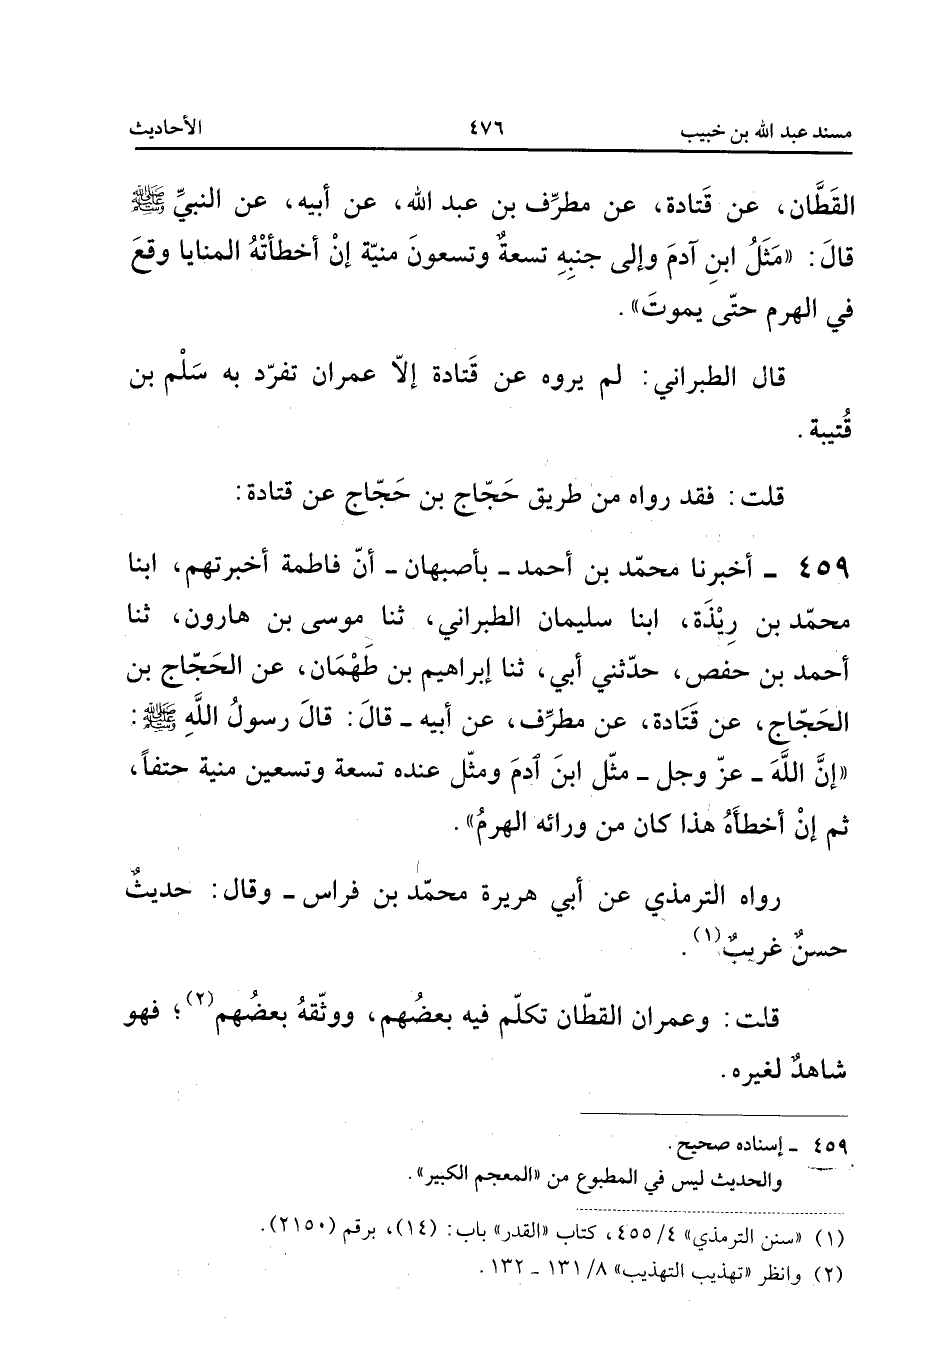 مسند عبد الله بن خبيب ٤٧٦ الأحاديث
القَطَّان، عن قَتادة، عن مطرِّف بن عبد الله، عن أبيه، عن النبيِّ ﷺ
قالَ: «مَثَلُ ابنِ آدمَ وإلى جنبِهِ تسعةٌ وتسعونَ منيّة إنْ أخطأتْهُ المنايا وقعَ
في الهرمِ حتّى يموتَ».
قال الطبراني: لم يروه عن قَتادة إلاّ عمران تفرّد به سَلْم بن
قُتيبة.
قلت: فقد رواه من طريق حَجّاج بن حَجّاج عن قتادة:
٤٥٩ ـ أخبرنا محمّد بن أحمد ـ بأصبهان ـ أنّ فاطمة أخبرتهم، ابنا
محمّد بن رِيْذَة، ابنا سليمان الطبراني، ثنا موسى بن هارون، ثنا
أحمد بن حفص، حدّثني أبي، ثنا إبراهيم بن طَهْمَان، عن الحَجّاج بن
الحَجّاج، عن قَتَادة، عن مطرِّف، عن أبيه ـ قالَ: قالَ رسولُ اللَّهِ ﷺ:
«إنَّ اللَّهَ ـ عزّ وجل ـ مثّل ابنَ آدمَ ومثّل عنده تسعة وتسعين منية حتفاً،
ثم إنْ أخطأَهُ هذا كان من ورائه الهرمُ».
رواه الترمذي عن أبي هريرة محمّد بن فراس ـ وقال: حديثٌ
حسنٌ غريبٌ(١).
قلت: وعمران القطّان تكلّم فيه بعضُهم، ووثّقهُ بعضُهم(٢)؛ فهو
شاهدٌ لغيره.
٤٥٩ ـ إسناده صحيح.
والحديث ليس في المطبوع من «المعجم الكبير».
(١) «سنن الترمذي» ٤/ ٤٥٥، كتاب «القدر» باب: (١٤)، برقم (٢١٥٠).
(٢) وانظر «تهذيب التهذيب» ٨/ ١٣١ ـ ١٣٢.